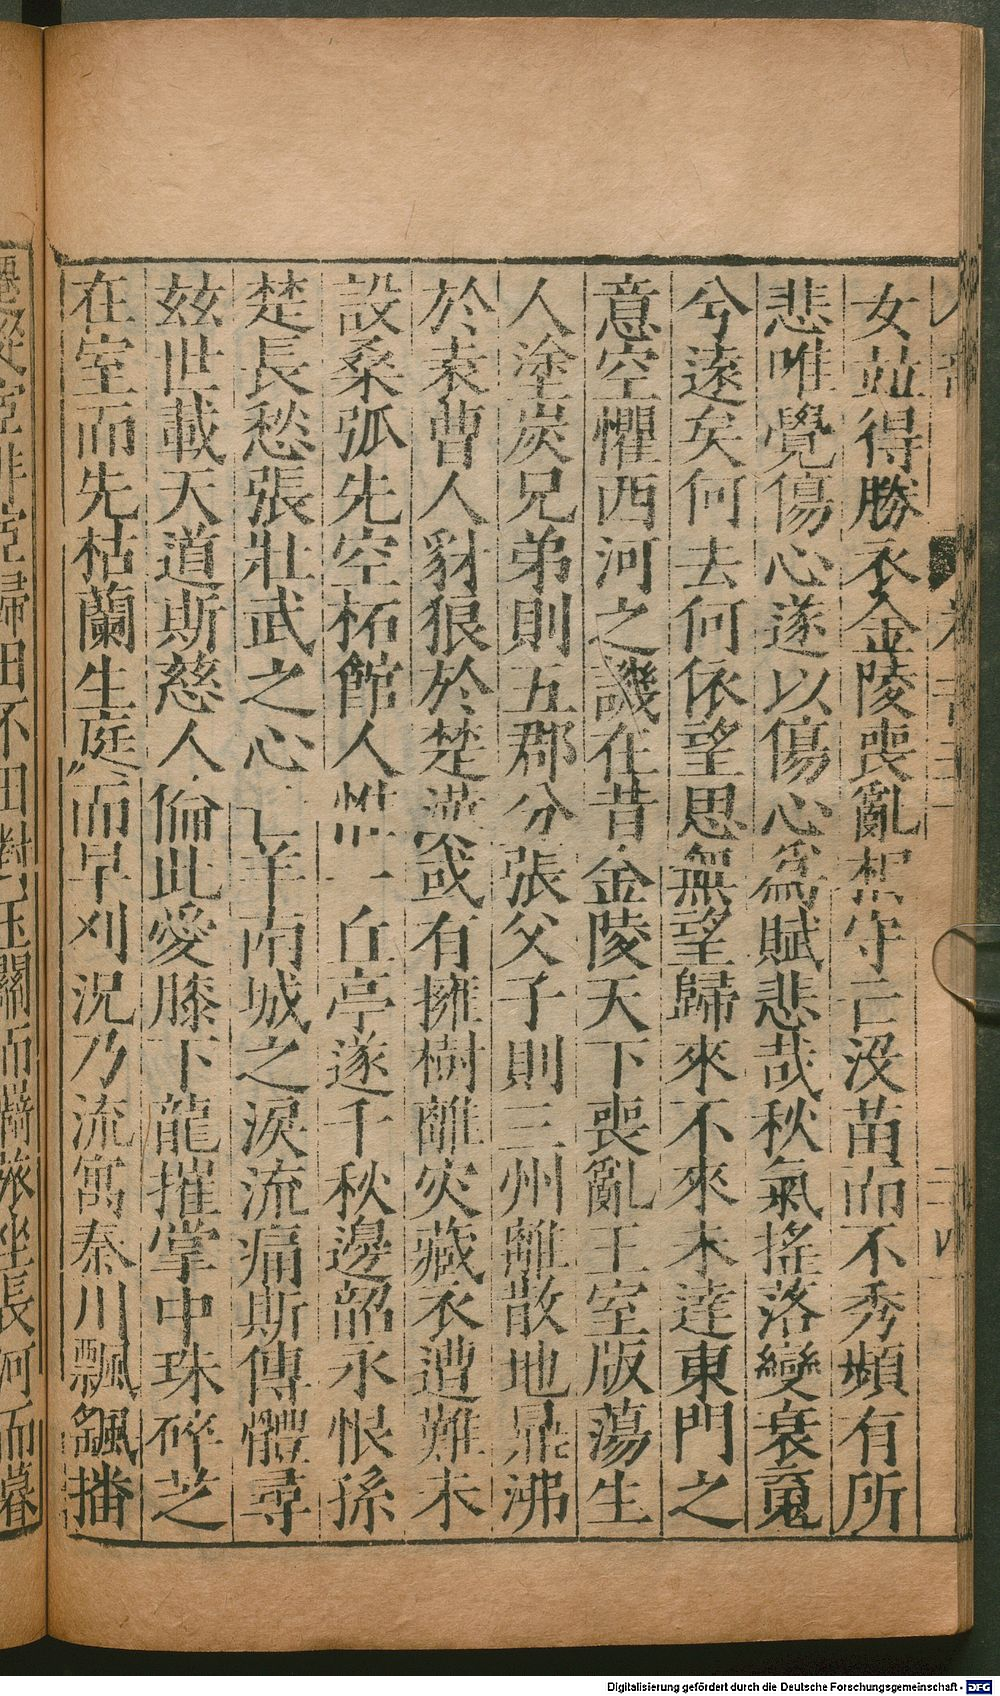 女茹得勝衣金陵喪亂相守亡没苗而不秀頻有所
悲唯覺傷心遂以傷心爲賦悲哉秋氣搖落變衰魂
兮遠矣何去何依望思無望歸來不來未達東門之
意空懼西河之譏在昔金陵天下喪亂王室版蕩生
人塗炭兄弟則五郡分張父子則三州離散地鼎沸
於袁曹人豺狼於楚漢或有擁樹離災藏衣遭難未
設桑弧先空柘館人惟一丘亭遂千秋邊韶永恨孫
楚長愁張壯武之心亡羊南城之淚流痛斯傳體尋
兹世載天道斯慈人倫此愛膝下龍摧掌中珠碎芝
在室而先枯蘭生庭而早刈況乃流寓秦川飄颻播
Digitalisierung gefördert durch die Deutsche Forschungsgemeinschaft - DFG